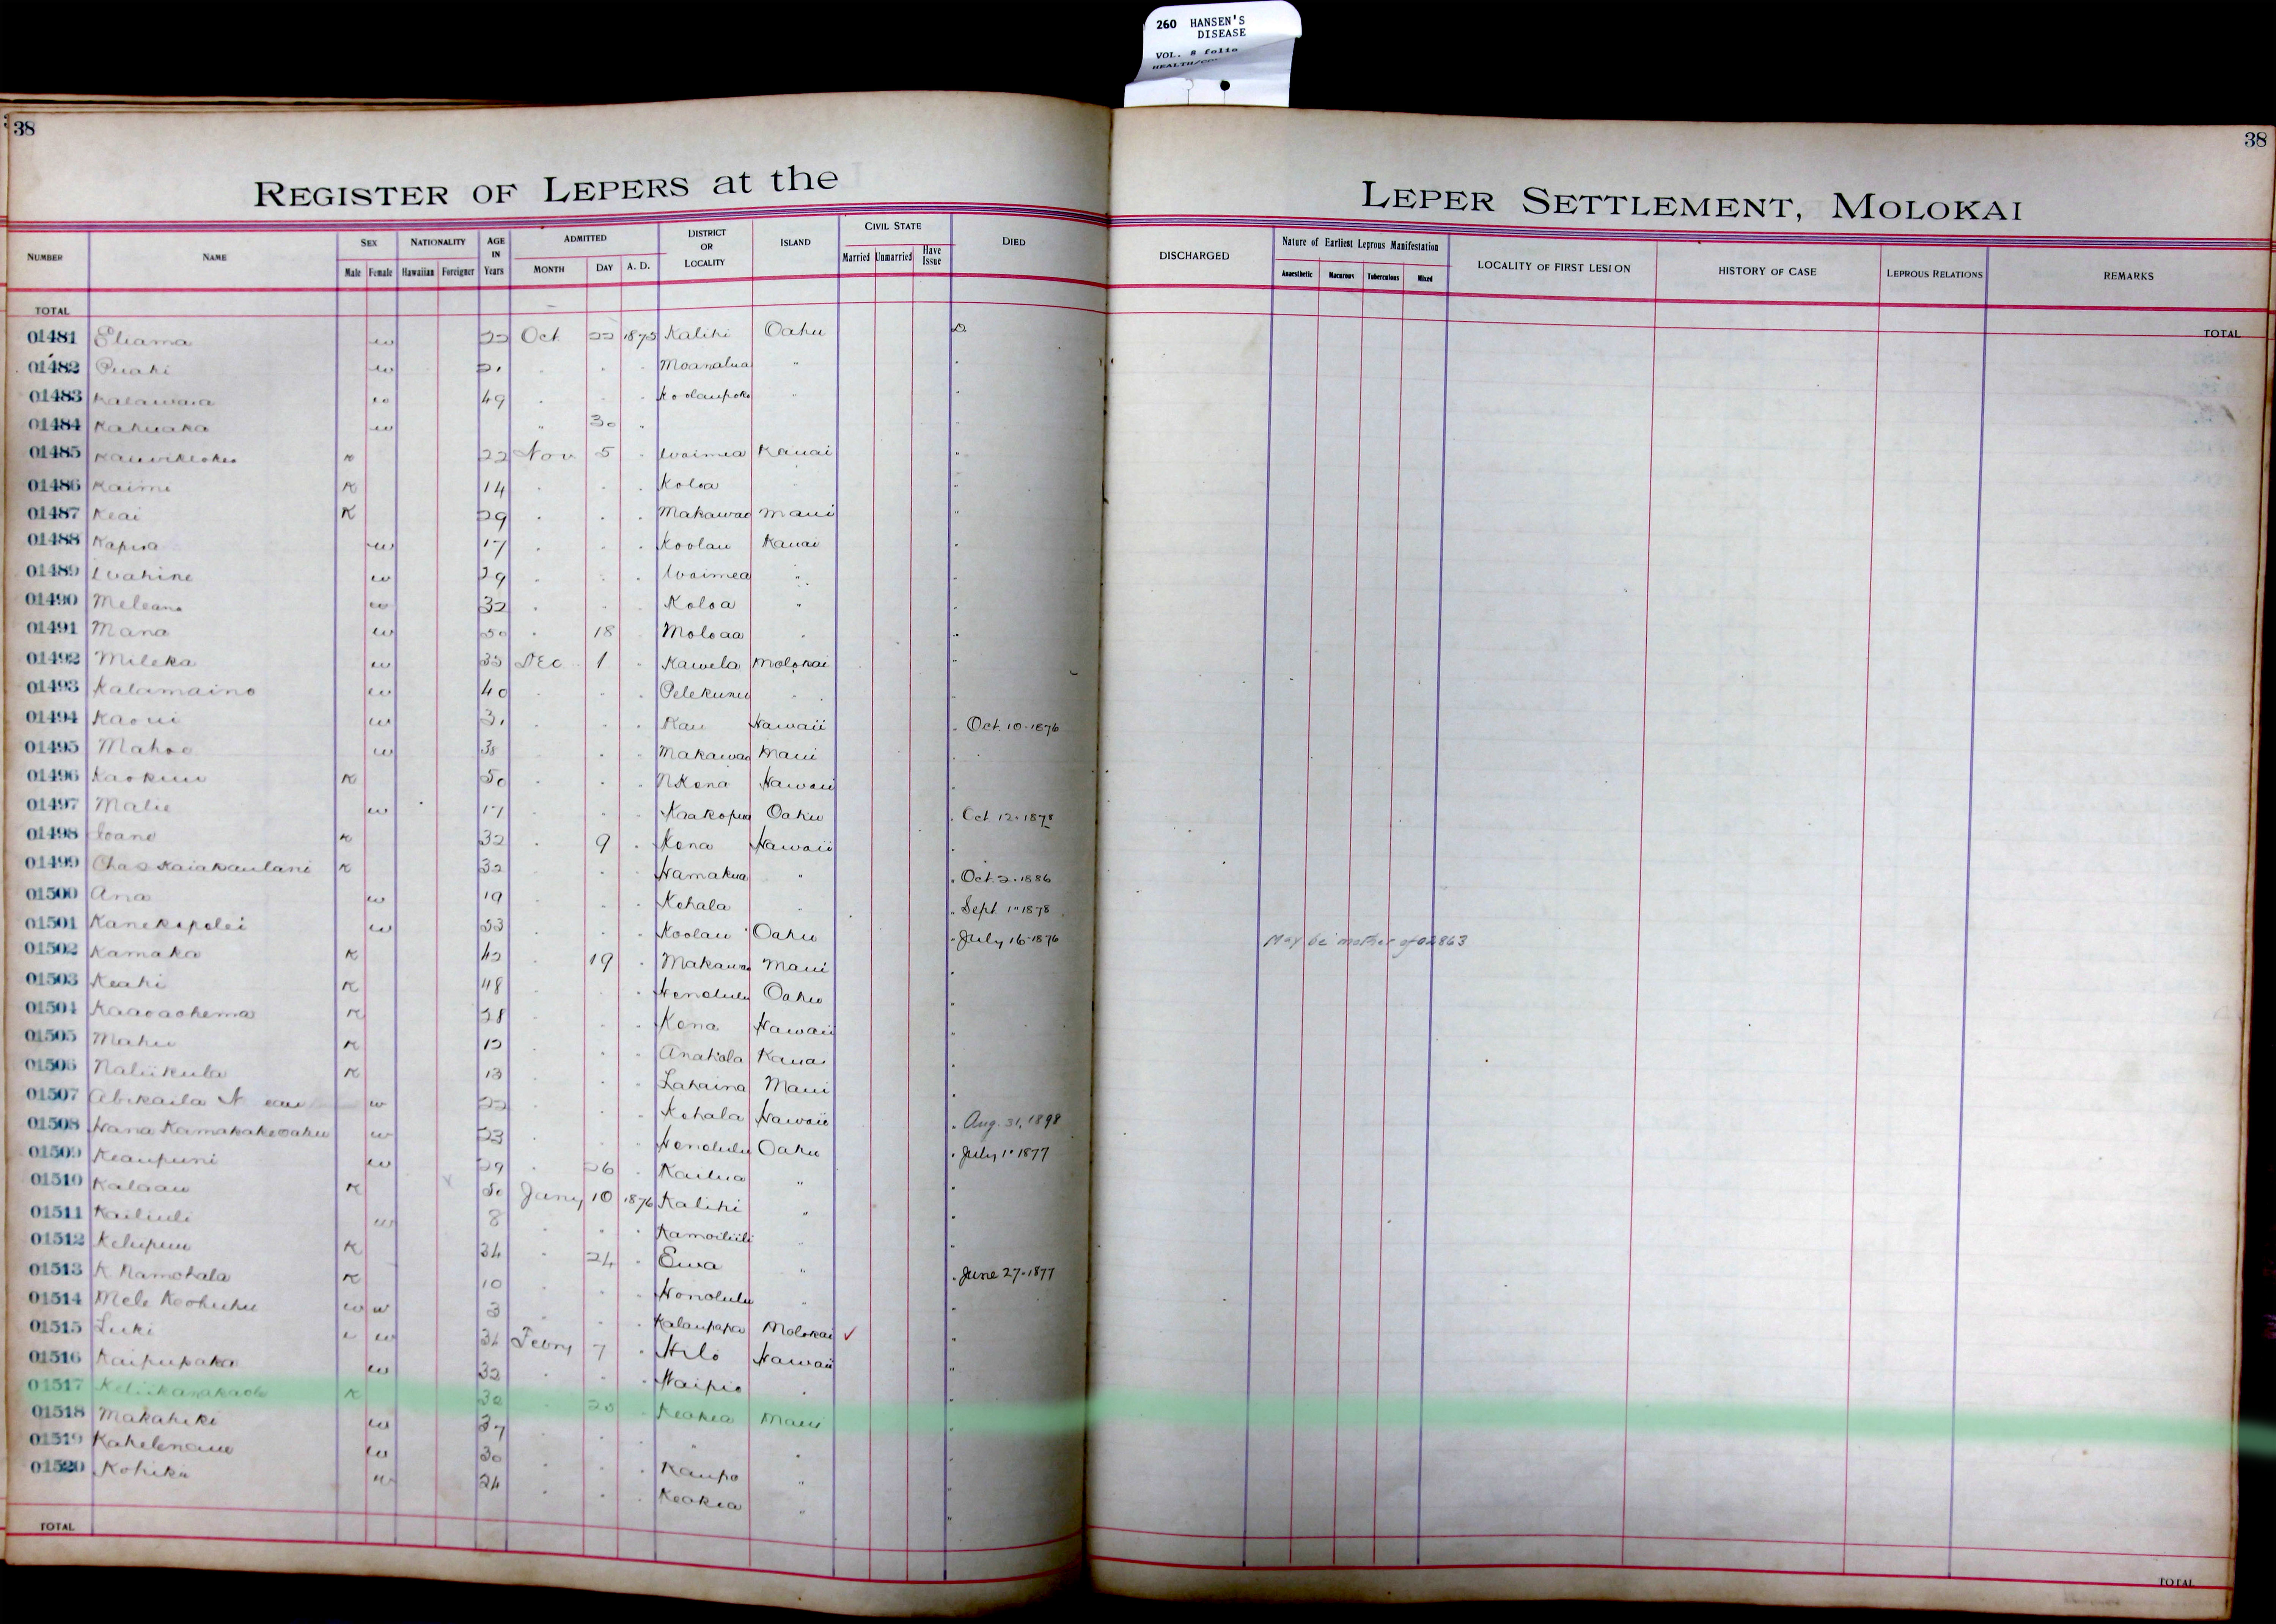 260 HANSEN'S
DISEASE
VOL. 8 folio
38
38
REGISTER OF LEPERS at the
LEPER SETTLEMENT, MOLOKAI
NUMBER NAME SEX Male Female NATIONALITY Hawaiian Foreigner AGE IN Years ADMITTED MONTH DAY A. D. DISTRICT OR LOCALITY ISLAND CIVIL STATE Married Unmarried Have Issue DIED
DISCHARGED Nature of Earliest Leprous Manifestation Anaesthetic Macurous Tuberculous Mixed LOCALITY OF FIRST LESION HISTORY OF CASE LEPROUS RELATIONS REMARKS
TOTAL
TOTAL
01481 Eliama w 22 Oct 22 1875 Kalihi Oahu D
01482 Puahi w " " " Moanalua "
01483 w 49 " " " Koolaupoko "
01484 Kahuaka w " 30 "
01485 K 22 Nov 5 " Waimea Kauai "
01486 Kaimi K 14 " " " Koloa "
01487 Keai K 29 " " " Makawao Maui "
01488 Kapua w 17 " " " Koolau Kauai "
01489 Wahine w 29 " " " Waimea " "
01490 Meleana w 32 " " " Koloa " "
01491 Mana w 50 " 18 " Moloaa " "
01492 Mileka w 35 Dec 1 " Kawela Molokai "
01493 Kalamaino w 40 " " " Pelekunu " "
01494 Kaoui w 31 " " " Kau Hawaii " Oct. 10-1876
01495 Mahoe w 38 " " " Makawao Maui "
01496 Kaokuu K 50 " " " N Kona Hawaii "
01497 Malie w 17 " " " Kaakopua Oahu " Oct 12-1878
01498 Ioane K 32 " 9 " Kona Hawaii "
01499 Chas Kaiakaulani K 32 " " " Hamakua " " Oct. 2-1886
01500 Ana w 19 " " " Kohala " " Sept 1-1878
01501 Kanekopolei w 53 " " " Koolau Oahu " July 16-1876 May be mother of 02863
01502 Kamaka K 42 " 19 " Makawao Maui "
01503 Keahi K 48 " " " Honolulu Oahu "
01504 Kaaoaohema K 28 " " " Kona Hawaii "
01505 Mahu K 12 " " " Anahola Kauai "
01506 Naliikula K 13 " " " Lahaina Maui "
01507 Abikaila N w 22 " " " Kohala Hawaii " Aug. 31, 1898
01508 Hana Kamakakeoahu w 23 " " " Honolulu Oahu " July 1-1877
01509 Keaupuni w 29 " 26 " Kailua " "
01510 Kalaau K 50 Jany 10 1876 Kalihi " "
01511 Kailiuli w 8 " " " Kamoiliili " "
01512 Kelupuu K 34 " 24 " Ewa " " June 27-1877
01513 K Namohala K 10 " " " Honolulu " "
01514 Mele Keohuhu w w 3 " " " Kalaupapa Molokai ✓ "
01515 Luki w 34 Febry 7 " Hilo Hawaii "
01516 Kaipupaka w 32 " " " Waipio " "
01517 Keliikanakaole K 30 " 20 " Keokea Maui "
01518 Makahiki w 37 " " " " " "
01519 Kahelenaue w 30 " " " Kaupo " "
01520 Kohika w 24 " " " Keokea " "
TOTAL
TOTAL